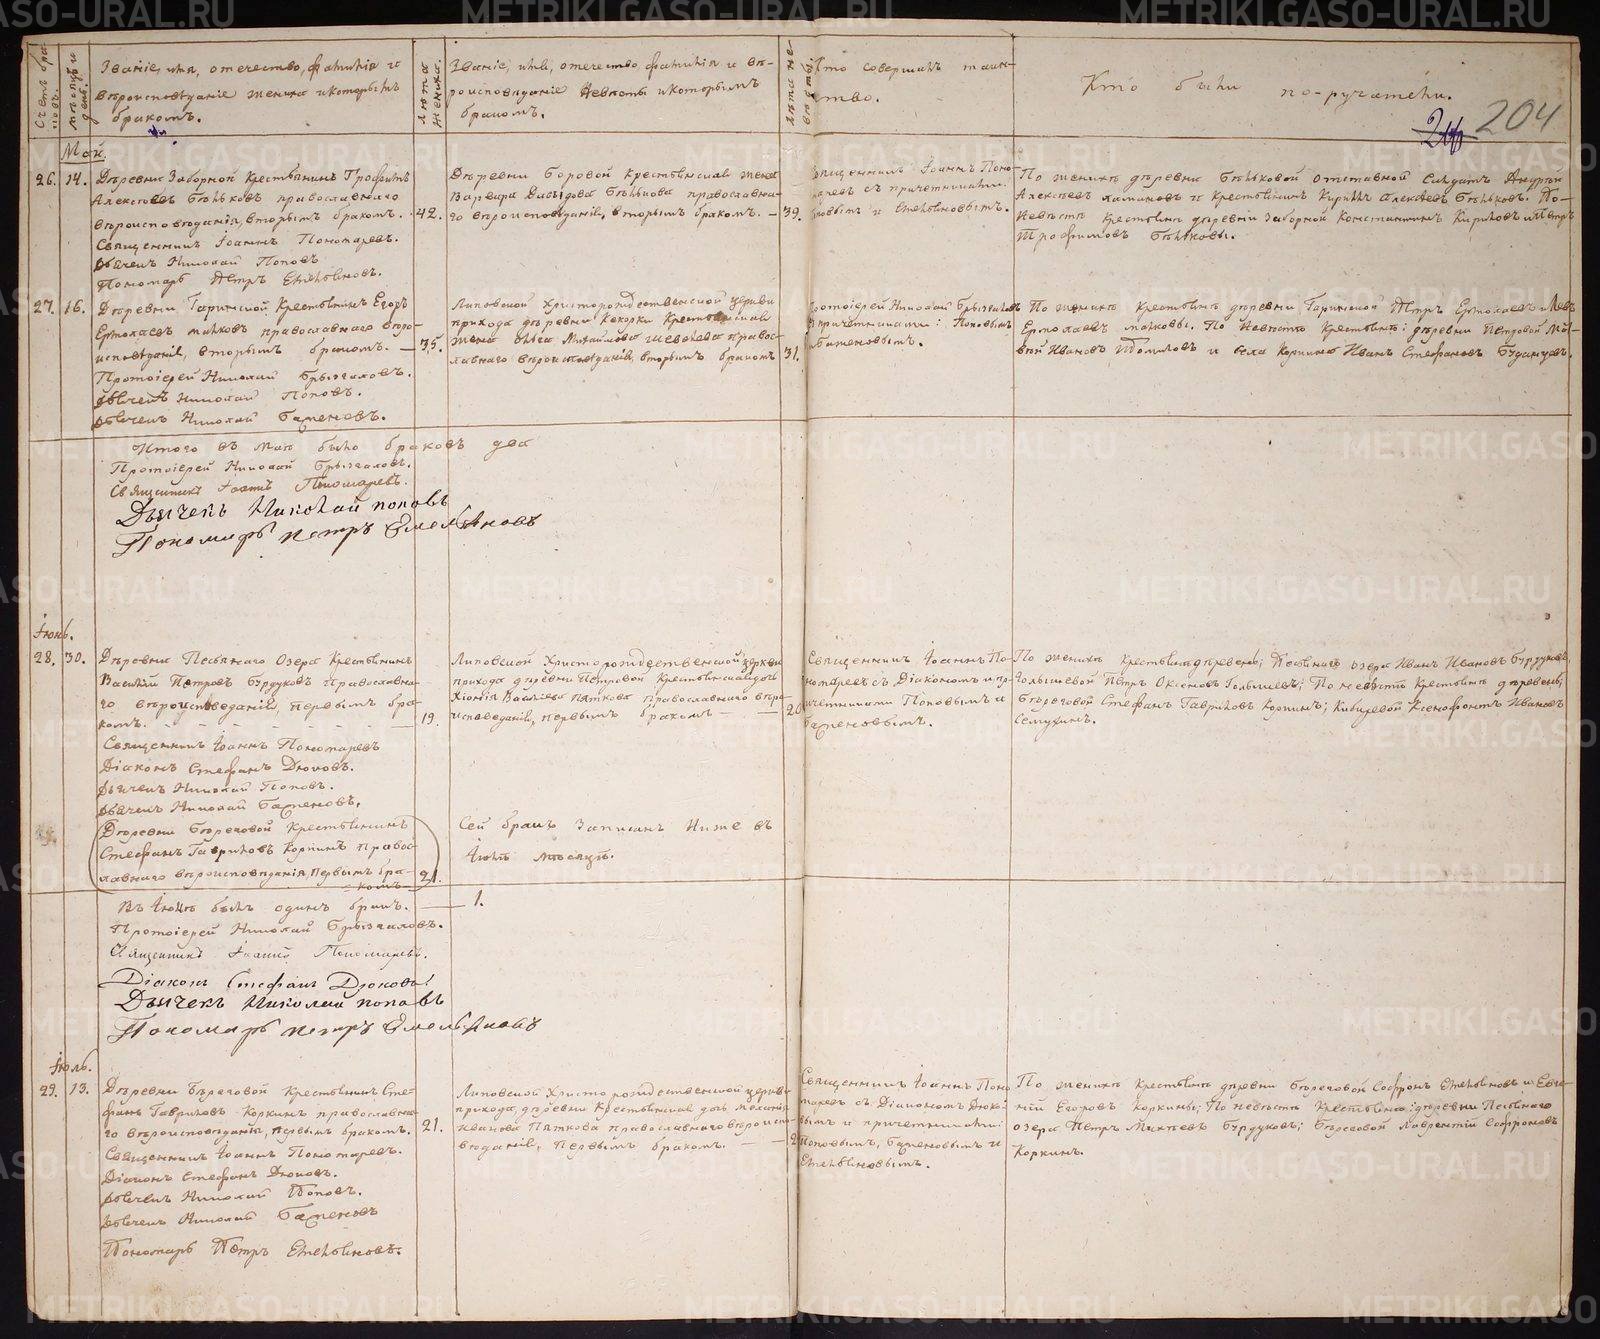 Счетъ бра-
ковъ.
Мѣсяцъ и
день.
Званіе, имя, отечество, фамилія и
вѣроисповѣданіе жениха и которымъ
бракомъ.
Лѣта
жениха.
Званіе, имя, отечество, фамилія и вѣ-
роисповѣданіе невѣсты и которымъ
бракомъ.
Лѣта не-
вѣсты.
Кто совершалъ таин-
ство.
Кто были по-ручатели.
204
Май.
26. 14.
Деревни Заборной Крестьянинъ Трофимъ
Алексѣевъ Бѣльковъ православнаго
вѣроисповѣданія, вторымъ бракомъ. - 42.
Священникъ Іоаннъ Пономаревъ.
Дьячекъ Николай Поповъ
Пономарь Петръ Емельяновъ.
Деревни Боровой крестьянская жена
Варвара Давыдова Бѣлькова православна-
го вѣроисповѣданія, вторымъ бракомъ. - 39.
Священникъ Іоаннъ Поно-
маревъ съ причетниками:
Поповымъ и Емельяновымъ.
По женихѣ деревни Бѣльковой Отставной Солдатъ
Алексѣевъ и крестьянинъ Кириллъ Алексѣевъ Бѣльковъ. По
невѣстѣ крестьяне деревни Заборной Константинъ Кириловъ и Петръ
Трофимовъ Бѣльковы.
27. 16.
Деревни Гаринской Крестьянинъ Егоръ
Ермолаевъ Малковъ православнаго вѣро-
исповѣданія, вторымъ бракомъ. - 35.
Протоіерей Николай Брызгаловъ.
Дьячекъ Николай Поповъ.
Дьячекъ Николай Баженовъ.
Липовской Христорождественской церкви
прихода деревни Кекорки Крестьянская
жена Ольга Михайлова Шевелева правос-
лавнаго вѣроисповѣданія, вторымъ бракомъ 31.
Протоіерей Николай Брызгаловъ
съ причетниками: Поповымъ
и Баженовымъ.
По женихѣ крестьяне деревни Гаринской Петръ Ермолаевъ и Левъ
Ермолаевъ Малковы. По невѣстѣ Крестьяне: деревни Петровой
Ивановъ Томиловъ и села Корнина Иванъ Стефановъ Буданцовъ.
Итого въ маѣ было браковъ два
Протоіерей Николай Брызгаловъ.
Священникъ Іоаннъ Пономаревъ.
Дьячекъ Николай Поповъ
Пономарь Петръ Емельяновъ
Іюнь.
28. 30.
Деревни Песьянаго Озера Крестьянинъ
Василій Петровъ Бурдуковъ православна-
го вѣроисповѣданія, первымъ бра-
комъ. - 19.
Священникъ Іоаннъ Пономаревъ
Діаконъ Стефанъ Дюковъ.
Дьячекъ Николай Поповъ.
Дьячекъ Николай Баженовъ.
Липовской Христорождественской церкви
прихода деревни Петровой Крестьянская дочь
Хіонія Васильева Пяткова православнаго вѣро-
исповѣданія, первымъ бракомъ - 20
Священникъ Іоаннъ По-
номаревъ съ Діакономъ и при-
четниками Поповымъ и
Баженовымъ.
По женихѣ Крестьяне деревень: Песьянаго озера Иванъ Ивановъ Бурдуковъ,
Голышевой Петръ Голышевъ; По невѣстѣ Крестьяне деревень:
Береговой Стефанъ Гавриловъ Коркинъ; Ксенофонтъ Ивановъ
Деревни Береговой Крестьянинъ
Стефанъ Гавриловъ Коркинъ правос-
лавнаго вѣроисповѣданія, первымъ бра-
комъ 21.
Сей бракъ записанъ ниже въ
Іюлѣ мѣсяцѣ.
Въ Іюнѣ былъ одинъ бракъ. 1.
Протоіерей Николай Брызгаловъ.
Священникъ Іоаннъ Пономаревъ.
Діаконъ Стефанъ Дюковъ
Дьячекъ Николай Поповъ
Пономарь Петръ Емельяновъ
Іюль.
29. 13.
Деревни Береговой Крестьянинъ Сте-
фанъ Гавриловъ Коркинъ православна-
го вѣроисповѣданія, первымъ бракомъ. 21.
Священникъ Іоаннъ Пономаревъ.
Діаконъ Стефанъ Дюковъ.
Дьячекъ Николай Поповъ.
Дьячекъ Николай Баженовъ
Пономарь Петръ Емельяновъ.
Липовской Христорождественской церкви
прихода, деревни Крестьянская дочь Меланія
Иванова Пяткова православнаго вѣроиспо-
вѣданія, первымъ бракомъ. - 2
Священникъ Іоаннъ Поно-
маревъ съ Діакономъ Дюко-
вымъ и причетниками:
Поповымъ, Баженовымъ и
Емельяновымъ.
По женихѣ Крестьяне деревни Береговой Софронъ Емельяновъ и Евге-
ній Егоровъ Коркины; По невѣстѣ Крестьяне: деревни Песьянаго
озера Петръ Михѣевъ Бурдуковъ; Береговой Лаврентій Софроновъ
Коркинъ.
METRIKI.GASO-URAL.RU